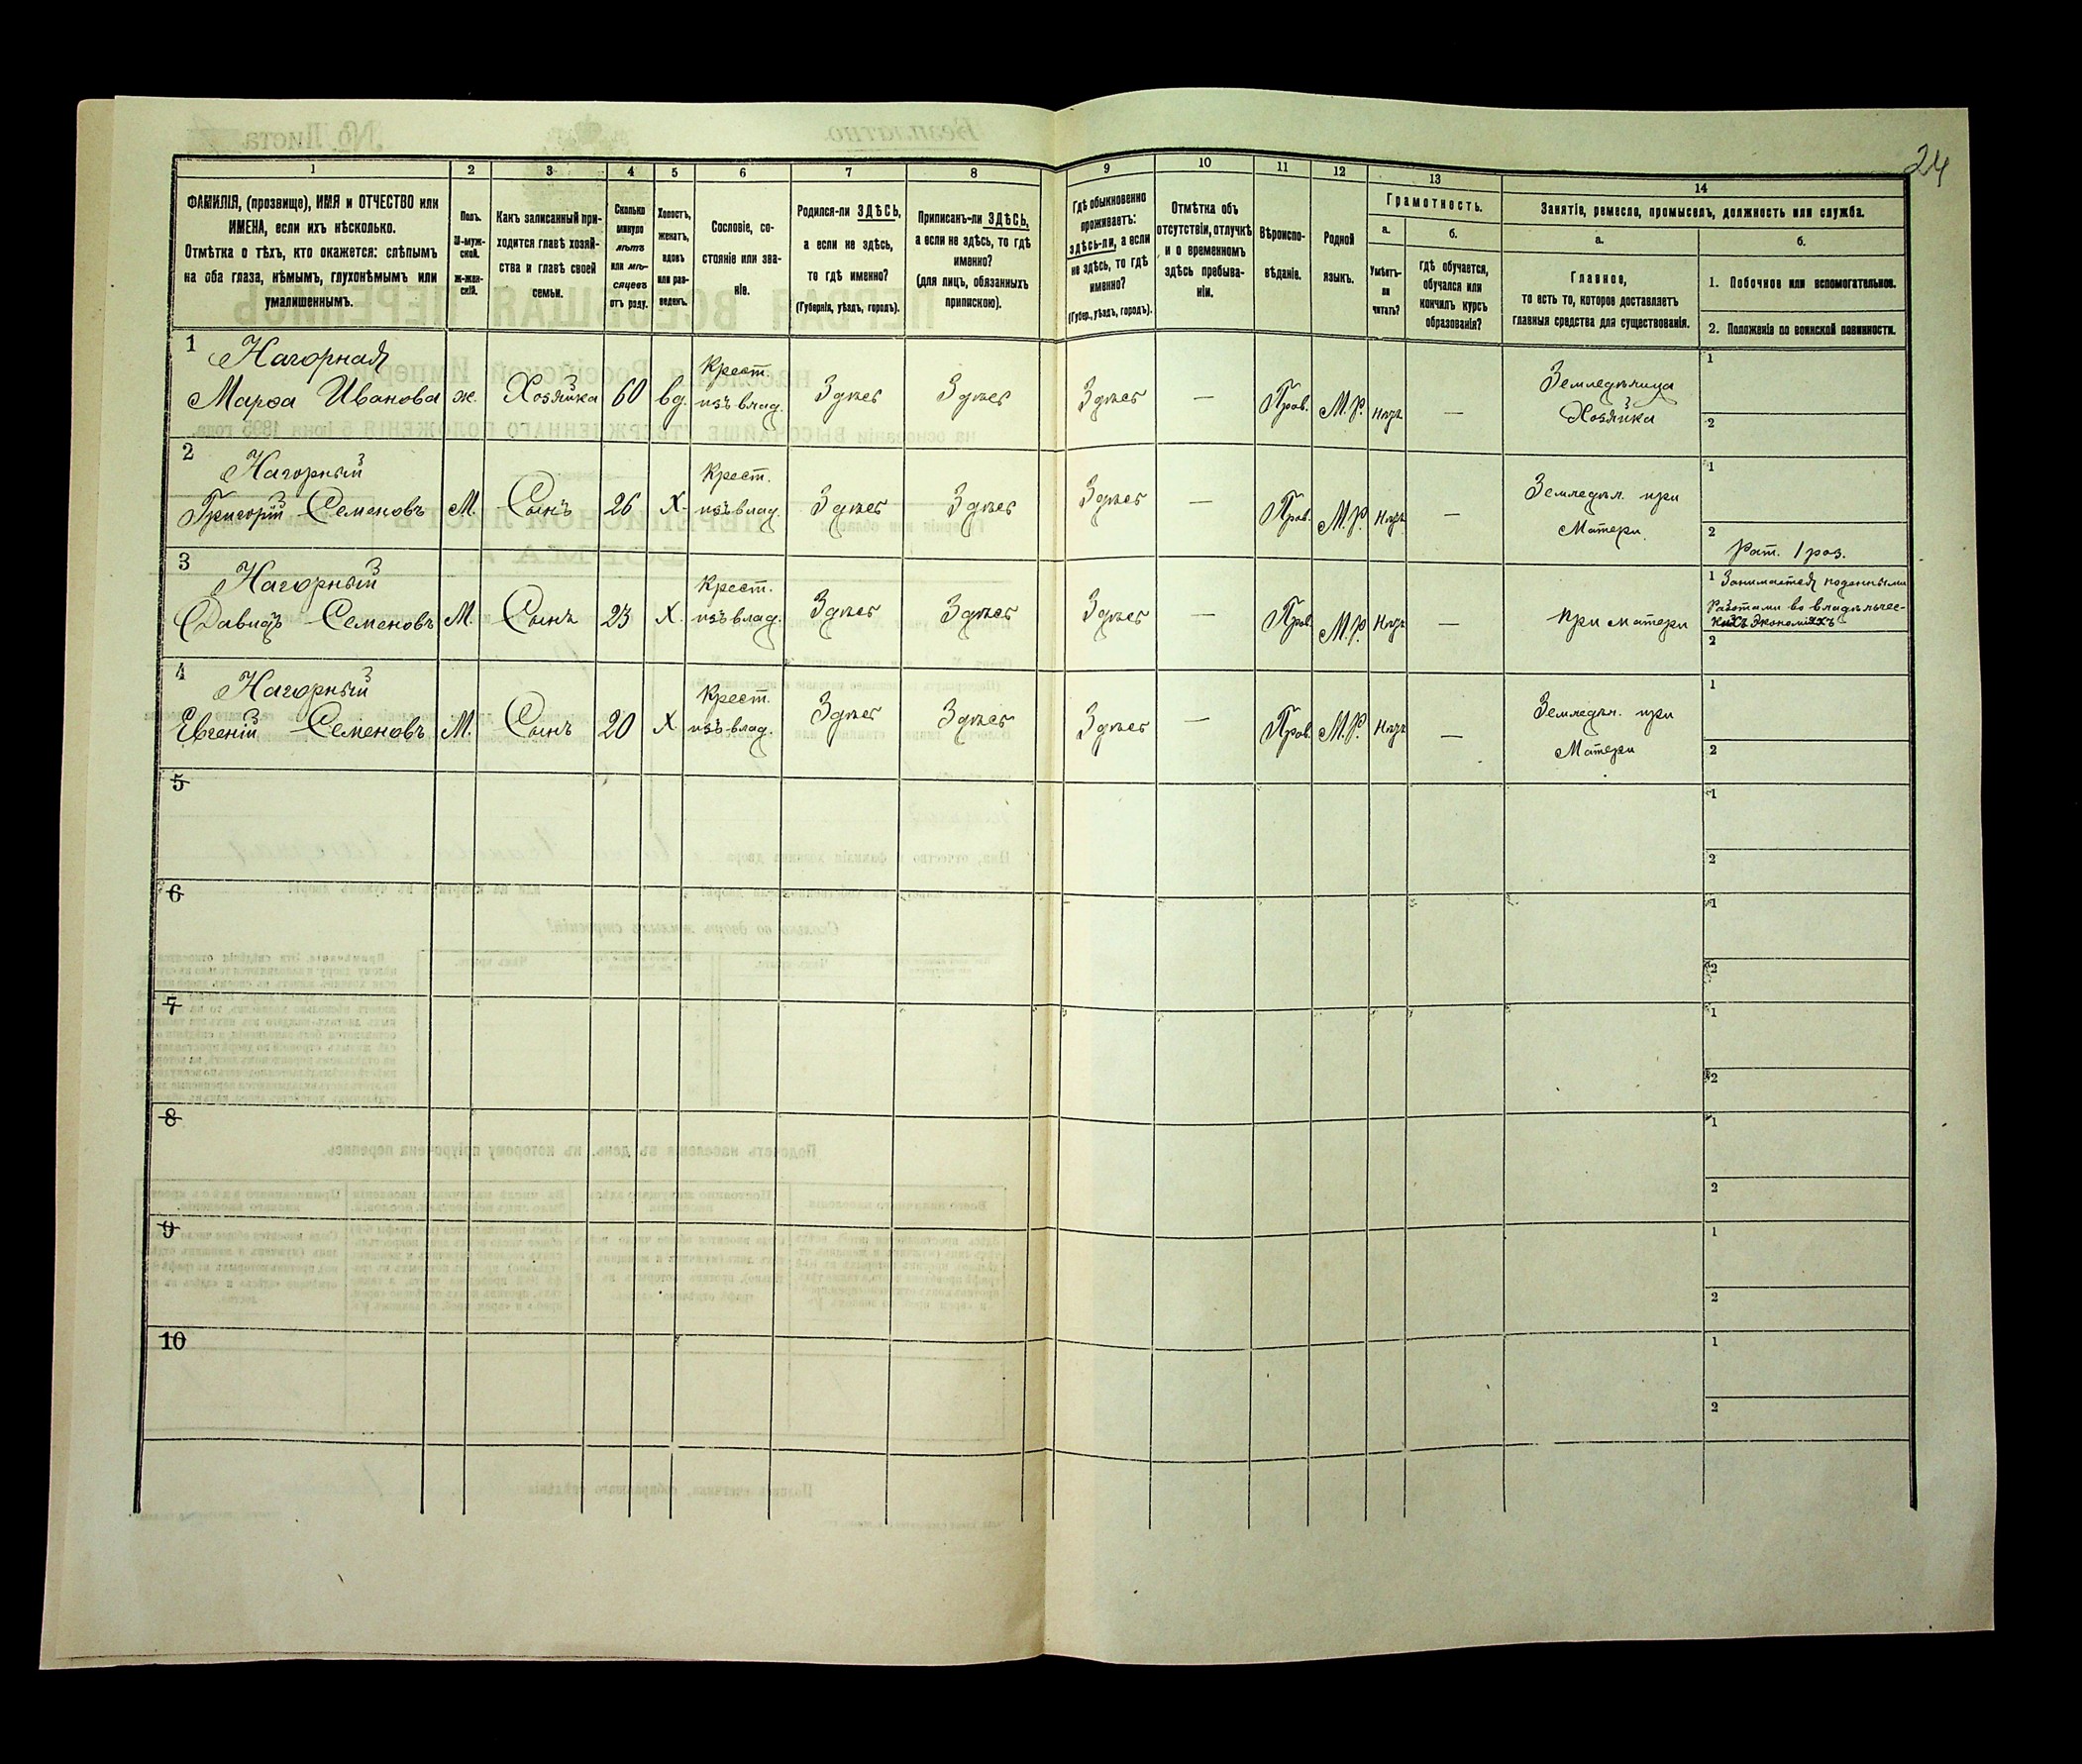 24
1 2 3 4 5 6 7 8 9 10 11 12 13 14
ФАМИЛІЯ, (прозвище), ИМЯ и ОТЧЕСТВО или
ИМЕНА, если ихъ нѣсколько.
Отмѣтка о тѣхъ, кто окажется: слѣпымъ
на оба глаза, нѣмымъ, глухонѣмымъ или
умалишеннымъ.
Полъ.
М-муж-
ской.
Ж-жен-
скій.
Какъ записанный при-
ходится главѣ хозяй-
ства и главѣ своей
семьи.
Сколько
минуло
лѣтъ
или мѣ-
сяцевъ
отъ роду.
Холостъ,
женатъ,
вдовъ
или раз-
веденъ.
Сословіе, со-
стояніе или зва-
ніе.
Родился-ли ЗДѢСЬ,
а если не здѣсь,
то гдѣ именно?
(Губернія, уѣздъ, городъ).
Приписанъ-ли ЗДѢСЬ,
а если не здѣсь, то гдѣ
именно?
(для лицъ, обязанныхъ
припискою).
Гдѣ обыкновенно
проживаетъ:
здѣсь-ли, а если
не здѣсь, то гдѣ
именно?
(Губер., уѣздъ, городъ).
Отмѣтка объ
отсутствіи, отлучкѣ
и о временномъ
здѣсь пребыва-
ніи.
Вѣроиспо-
вѣданіе.
Родной
языкъ.
Грамотность.
а.
Умѣетъ-
ли
читать?
б.
гдѣ обучается,
обучался или
кончилъ курсъ
образованія?
Занятіе, ремесло, промыселъ, должность или служба.
а.
Главное,
то есть то, которое доставляетъ
главныя средства для существованія.
б.
1. Побочное или вспомогательное.
2. Положеніе по воинской повинности.
1 Нагорная Крест. Земледѣлица 1
Марѳа Иванова ж. Хозяйка 60 вд. изъ влад. Здѣсь Здѣсь Здѣсь — Прав. М.Р. нѣтъ — Хозяйка 2
2 Нагорный Крест. Земледѣл. при 1
Григорій Семеновъ М. Сынъ 26 Х. изъ влад. Здѣсь Здѣсь Здѣсь — Прав. М.Р. нѣтъ — Матери. 2
Рат. 1 раз.
3 Нагорный Крест. 1 Занимается поденными
Давидъ Семеновъ М. Сынъ 23 Х. изъ влад. Здѣсь Здѣсь Здѣсь — Прав. М.Р. нѣтъ — при матери работами во владѣльчес-
кихъ экономіяхъ
2
4 Нагорный Крест. Земледѣл. при 1
Евгеній Семеновъ М. Сынъ 20 Х изъ влад. Здѣсь Здѣсь Здѣсь — Прав. М.Р. нѣтъ — Матери 2
5 1
2
6 1
2
7 1
2
8 1
2
9 1
2
10 1
2